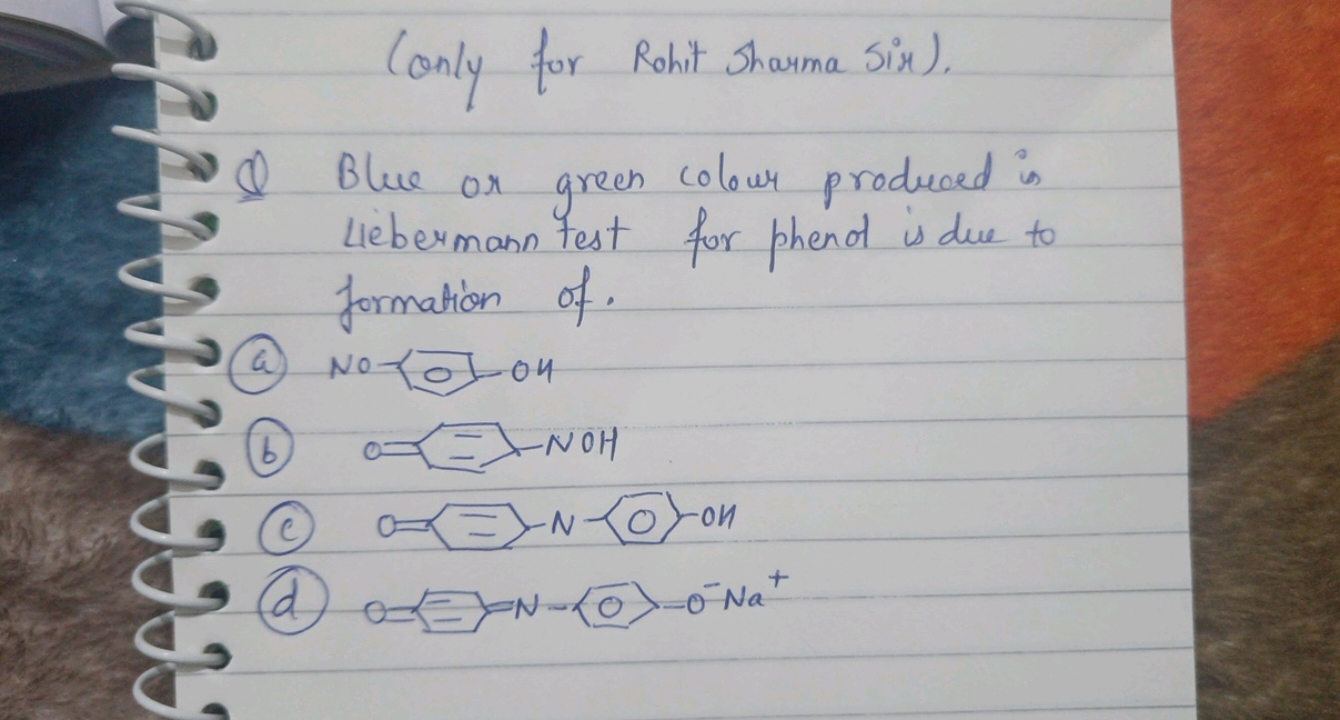 (only for Rohit Sharma Sir).
Q Blue or green colour produced in
Liebermann test for phenol is due to
formation of.
(a) NO-⌬-OH
(b) O=⌬-NOH
(c) O=⌬-N-⌬-OH
(d) O=⌬=N-⌬-O⁻Na⁺